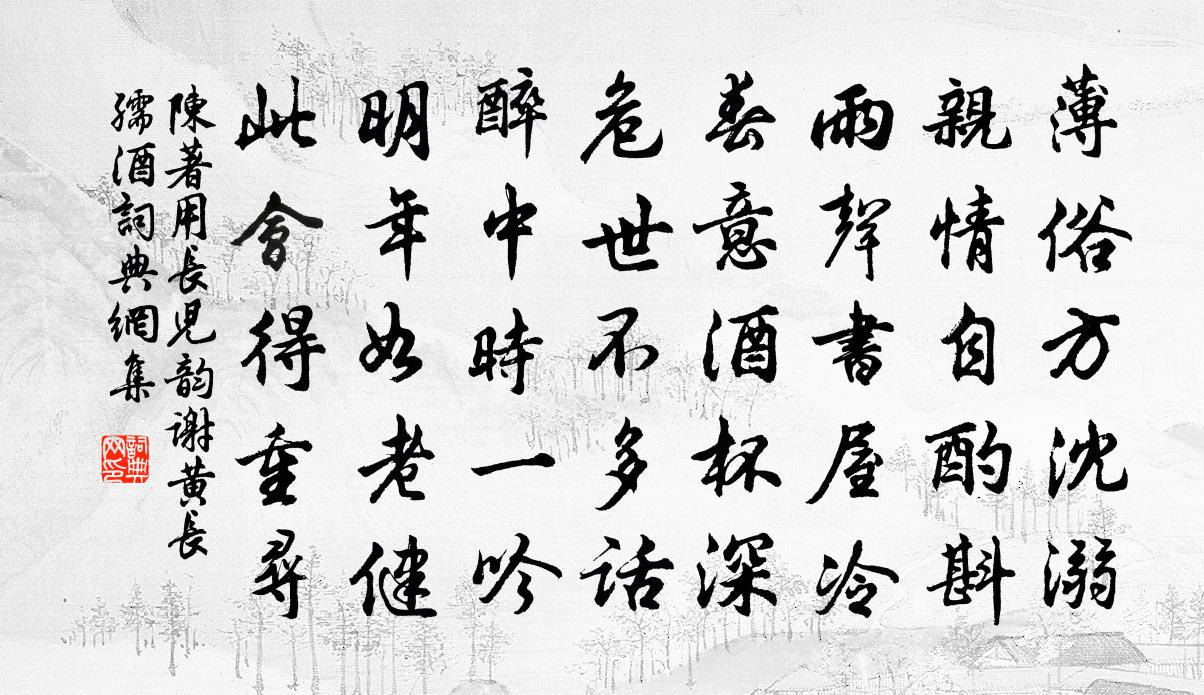 薄俗方沈溺
親情自酌斟
雨聲書屋冷
春意酒杯深
危世不多話
醉中時一吟
明年如老健
此會得重尋
陳著用長兒韵谢黄長
孺酒詞典網集
詞典网印